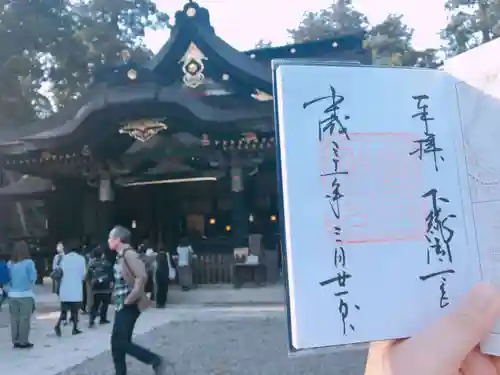 奉拝 下総國一宮
平成三十一年三月廿一日